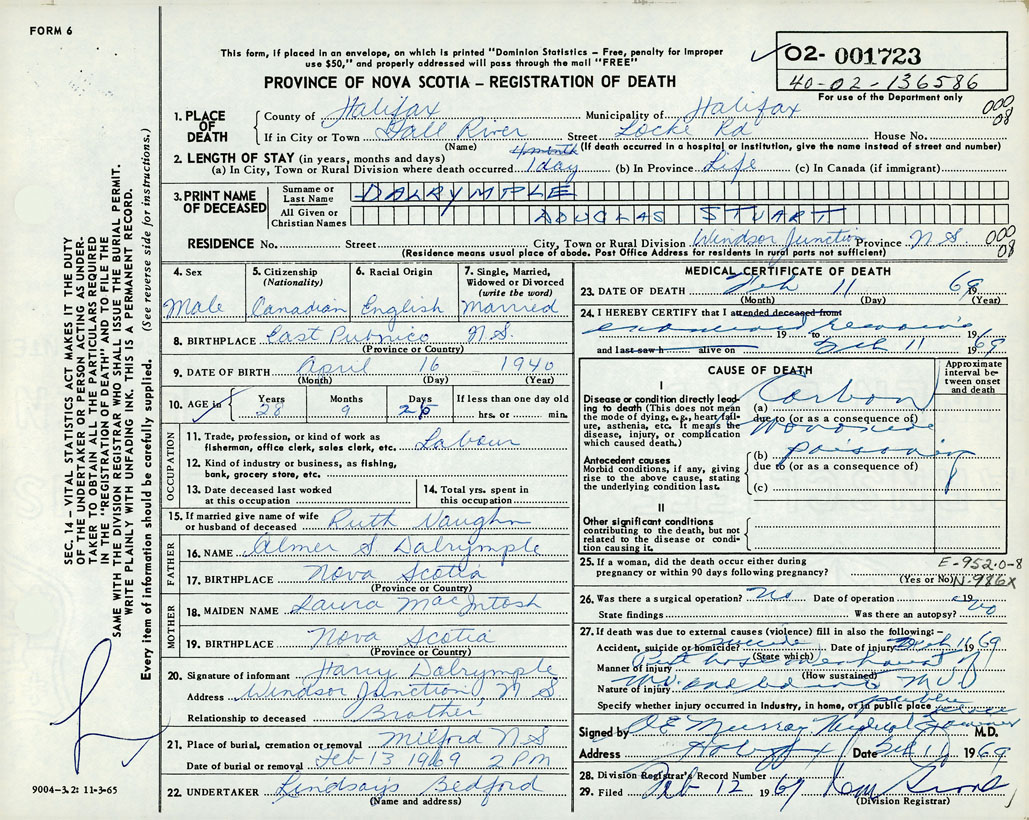 FORM 6
This form, if placed in an envelope, on which is printed "Dominion Statistics – Free, penalty for improper
use $50," and properly addressed will pass through the mail "FREE"
PROVINCE OF NOVA SCOTIA – REGISTRATION OF DEATH
02- 001723
40-02-136586
For use of the Department only
1. PLACE OF DEATH
County of Halifax Municipality of Halifax 000 08
If in City or Town Fall River Street Locke Rd House No.
(Name) (If death occurred in a hospital or institution, give the name instead of street and number)
2. LENGTH OF STAY (in years, months and days)
(a) In City, Town or Rural Division where death occurred 1 day (b) In Province Life (c) In Canada (if immigrant)
3. PRINT NAME OF DECEASED
Surname or Last Name DALRYMPLE
All Given or Christian Names DOUGLAS STUART
RESIDENCE No. Street City, Town or Rural Division Windsor Junction Province N S 000 08
(Residence means usual place of abode. Post Office Address for residents in rural parts not sufficient)
4. Sex
Male
5. Citizenship (Nationality)
Canadian
6. Racial Origin
English
7. Single, Married, Widowed or Divorced (write the word)
Married
8. BIRTHPLACE East Pubnico N.S.
(Province or Country)
9. DATE OF BIRTH April 16 1940
(Month) (Day) (Year)
10. AGE in Years 28 Months 9 Days 26 If less than one day old hrs. or min.
OCCUPATION
11. Trade, profession, or kind of work as fisherman, office clerk, sales clerk, etc. Labour
12. Kind of industry or business, as fishing, bank, grocery store, etc.
13. Date deceased last worked at this occupation
14. Total yrs. spent in this occupation
15. If married give name of wife or husband of deceased Ruth Vaughn
FATHER
16. NAME Almer S Dalrymple
17. BIRTHPLACE Nova Scotia
(Province or Country)
MOTHER
18. MAIDEN NAME Laura MacIntosh
19. BIRTHPLACE Nova Scotia
(Province or Country)
20. Signature of informant Harry Dalrymple
Address Windsor Junction N S
Relationship to deceased Brother
21. Place of burial, cremation or removal Milford N S
Date of burial or removal Feb 13 1969 2 PM
22. UNDERTAKER Lindsays Bedford
(Name and address)
MEDICAL CERTIFICATE OF DEATH
23. DATE OF DEATH Feb 11 1969
(Month) (Day) (Year)
24. I HEREBY CERTIFY that I attended deceased from
19 to 19
and last saw h alive on Feb 11 1969
CAUSE OF DEATH
Approximate interval between onset and death
I
Disease or condition directly leading to death (This does not mean the mode of dying, e.g., heart failure, asthenia, etc. It means the disease, injury, or complication which caused death.)
(a) Carbon
due to (or as a consequence of)
Monoxide
Antecedent causes
Morbid conditions, if any, giving rise to the above cause, stating the underlying condition last.
(b) poisoning
due to (or as a consequence of)
(c)
II
Other significant conditions contributing to the death, but not related to the disease or condition causing it.
25. If a woman, did the death occur either during pregnancy or within 90 days following pregnancy?
(Yes or No)
E-952.0-8
N-986X
26. Was there a surgical operation? No Date of operation 19
State findings Was there an autopsy? No
27. If death was due to external causes (violence) fill in also the following:–
Accident, suicide or homicide? suicide Date of injury Feb 11 1969
(State which)
Manner of injury Put hose exhaust of
(How sustained)
Nature of injury
Specify whether injury occurred in Industry, in home, or in public place public
Signed by Murray Medical Examiner M.D.
Address Halifax Date Feb 11 1969
28. Division Registrar's Record Number
29. Filed Feb 12 1969
(Division Registrar)
SEC. 14 – VITAL STATISTICS ACT MAKES IT THE DUTY
OF THE UNDERTAKER OR PERSON ACTING AS UNDER-
TAKER TO OBTAIN ALL THE PARTICULARS REQUIRED
IN THE "REGISTRATION OF DEATH" AND TO FILE THE
SAME WITH THE DIVISION REGISTRAR WHO SHALL ISSUE THE BURIAL PERMIT.
WRITE PLAINLY WITH UNFADING INK. THIS IS A PERMANENT RECORD.
Every item of information should be carefully supplied. (See reverse side for instructions.)
9004-3.2: 11-3-65